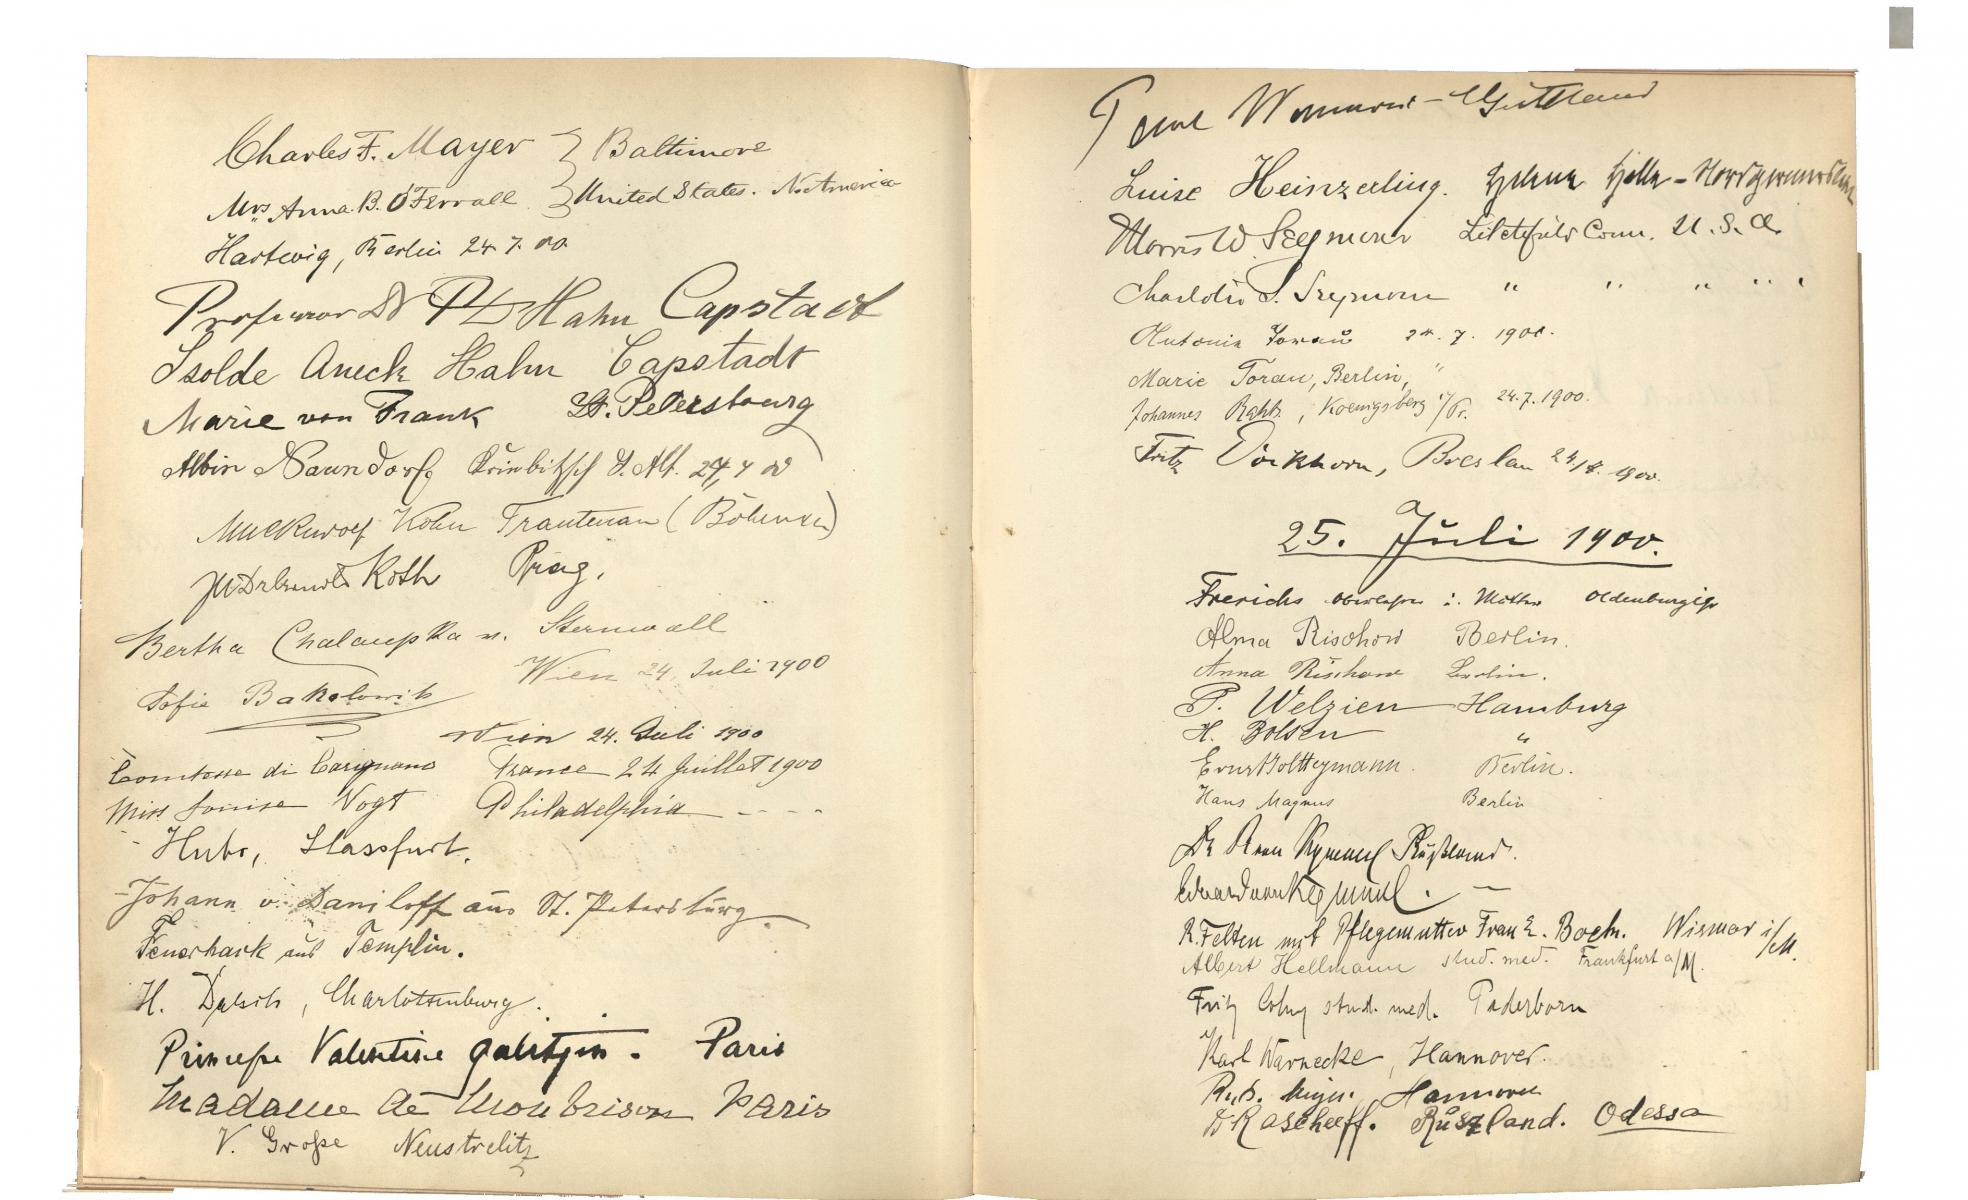 Charles F. Mayer } Baltimore
Mrs. Anna B. O'Ferrall } United States. No. America
Hartwig, Berlin 24.7.00
Professor Dr P D Hahn Capstadt
Isolde Aneck Hahn Capstadt
Marie von Frank St. Petersbourg
Albin Naundorf S. Alt. 24.7.00
Kohn Trautenau (Böhmen)
Koth Prag.
Bertha Chalaupka v. Sternwall
Wien 24. Juli 1900
Sofie Bakalowits
Wien 24. Juli 1900
Comtesse di Carignano France 24 Juillet 1900
Miss Louise Vogt Philadelphia - - - -
Huhr, Stassfurt.
Johann v. Daniloff aus St. Petersburg
Feuerhack aus Templin.
H. Charlottenburg.
Valentine Galitzin. Paris
Madame de Montbrison Paris
V. Große Neustrelitz
Luise Heinzerling.
Morris W. Seymour Litchfield Conn. U.S.A.
Charlotte S. Seymour " " " " "
Antonie Torau 24.7.1900.
Marie Torau, Berlin, "
Johannes Koenigsberg i/Pr. 24.7.1900.
Fritz Breslau 1900.
25. Juli 1900.
Frerichs
Alma Rischow Berlin.
Anna Rischow Berlin.
P. Welzien Hamburg
H. Bolsen "
Ernst Berlin.
Hans Magnus Berlin
Dr Rußland.
Eduard von
R. Felten mit Pflegemutter Frau E. Boeln. Wismar i/M.
Albert Hellmann stud. med. Frankfurt a/M.
Fritz Cohn stud. med. Paderborn
Karl Warnecke, Hannover.
Hannover
Dr Rascheeff. Rußland. Odessa